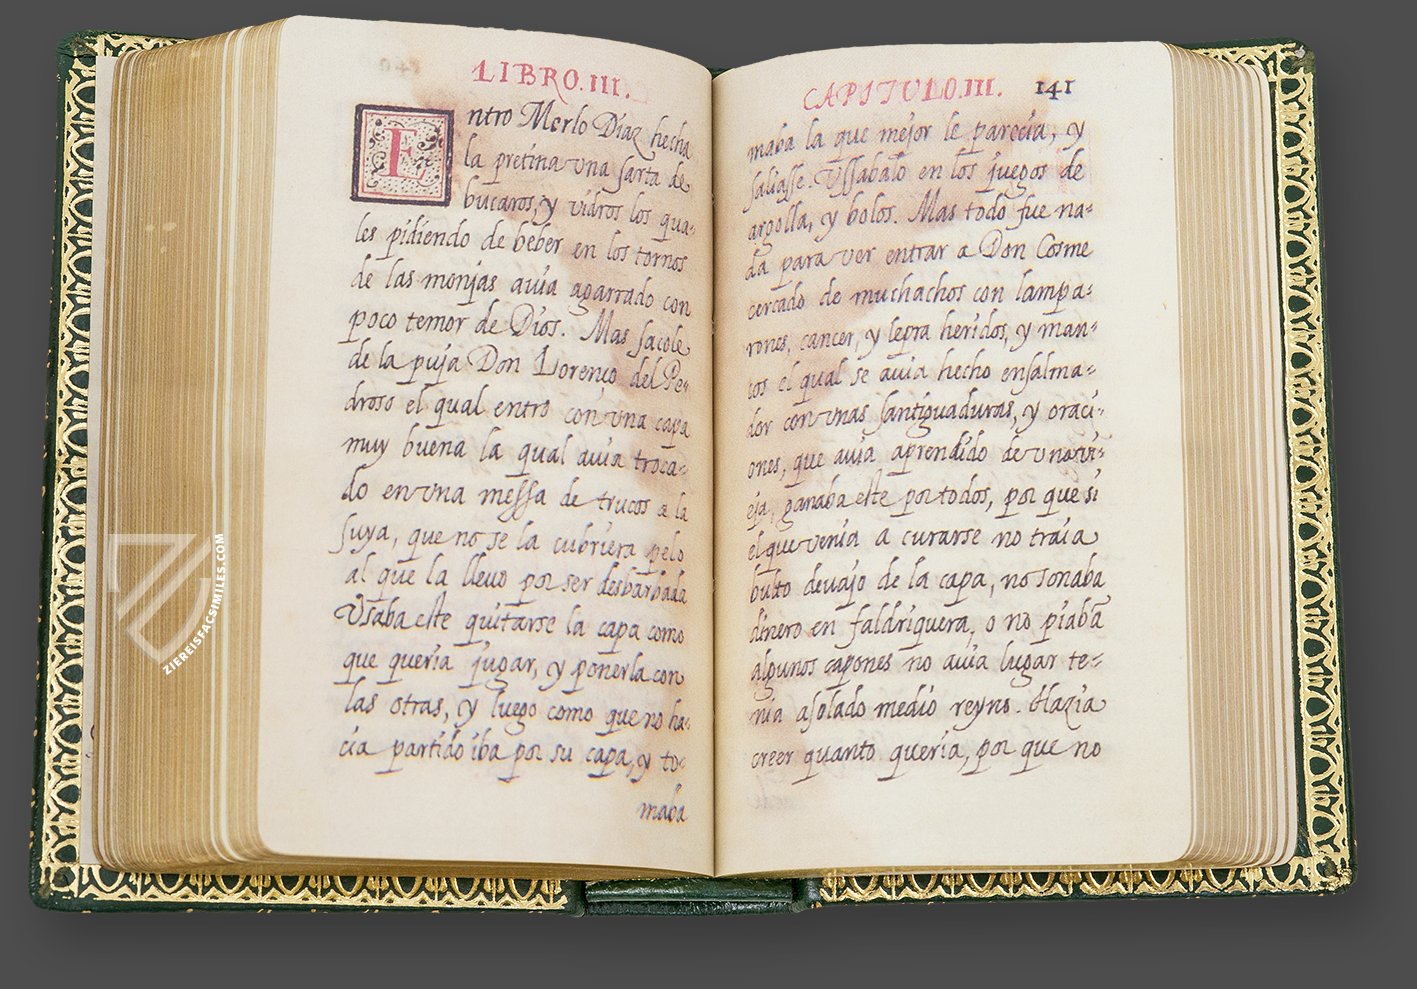 LIBRO.III.
Entro Merlo Diaz hecha
la pretina vna sarta de
bucaros, y vidros los qua-
les pidiendo de beber en los tornos
de las monjas auia agarrado con
poco temor de Dios. Mas sacole
de la puja Don Lorenço del Pe-
droso el qual entro con vna capa
muy buena la qual auia troca-
do en vna messa de trucos a la
suya, que no se la cubriera pelo
al que la lleuo por ser desbarbada
Vsaba este quitarse la capa como
que queria jugar, y ponerla con
las otras, y luego como que no ha-
cia partido iba por su capa, y to-
maba
CAPITVLO.III. 141
maba la que mejor le parecia, y
saliasse. Vssabalo en los juegos de
argolla, y bolos. Mas todo fue na-
da para ver entrar a Don Cosme
cercado de muchachos con lampa-
rones, cancer, y lepra heridos, y man-
cos el qual se auia hecho ensalma-
dor con vnas santiguaduras, y oraci-
ones, que auia aprendido de vna vi-
eja, ganaba este por todos, por que si
el que venia a curarse no traia
bulto deuajo de la capa, no sonaba
dinero en faldriquera, o no piaban
algunos capones no auia lugar te-
nia asolado medio reyno. Hazia
creer quanto queria, por que no
ZIEREISFACSIMILES.COM